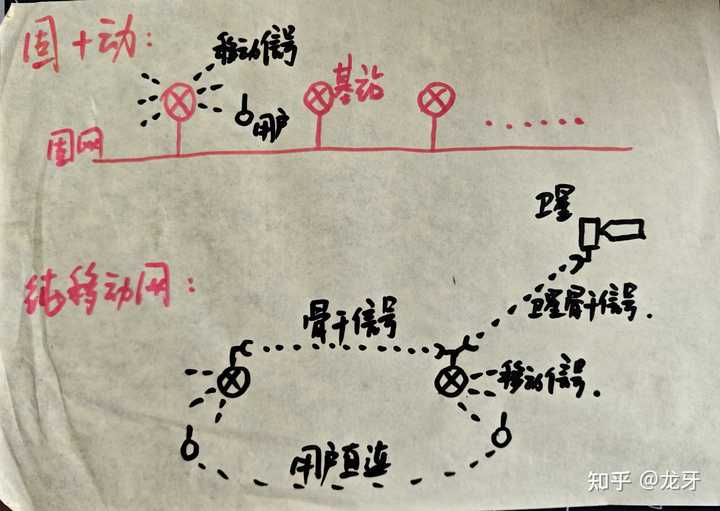 固+动:
移动信号
基站
用户
固网
......
卫星
纯移动网:
骨干信号
卫星骨干信号.
移动信号.
用户直连
知乎 @龙牙